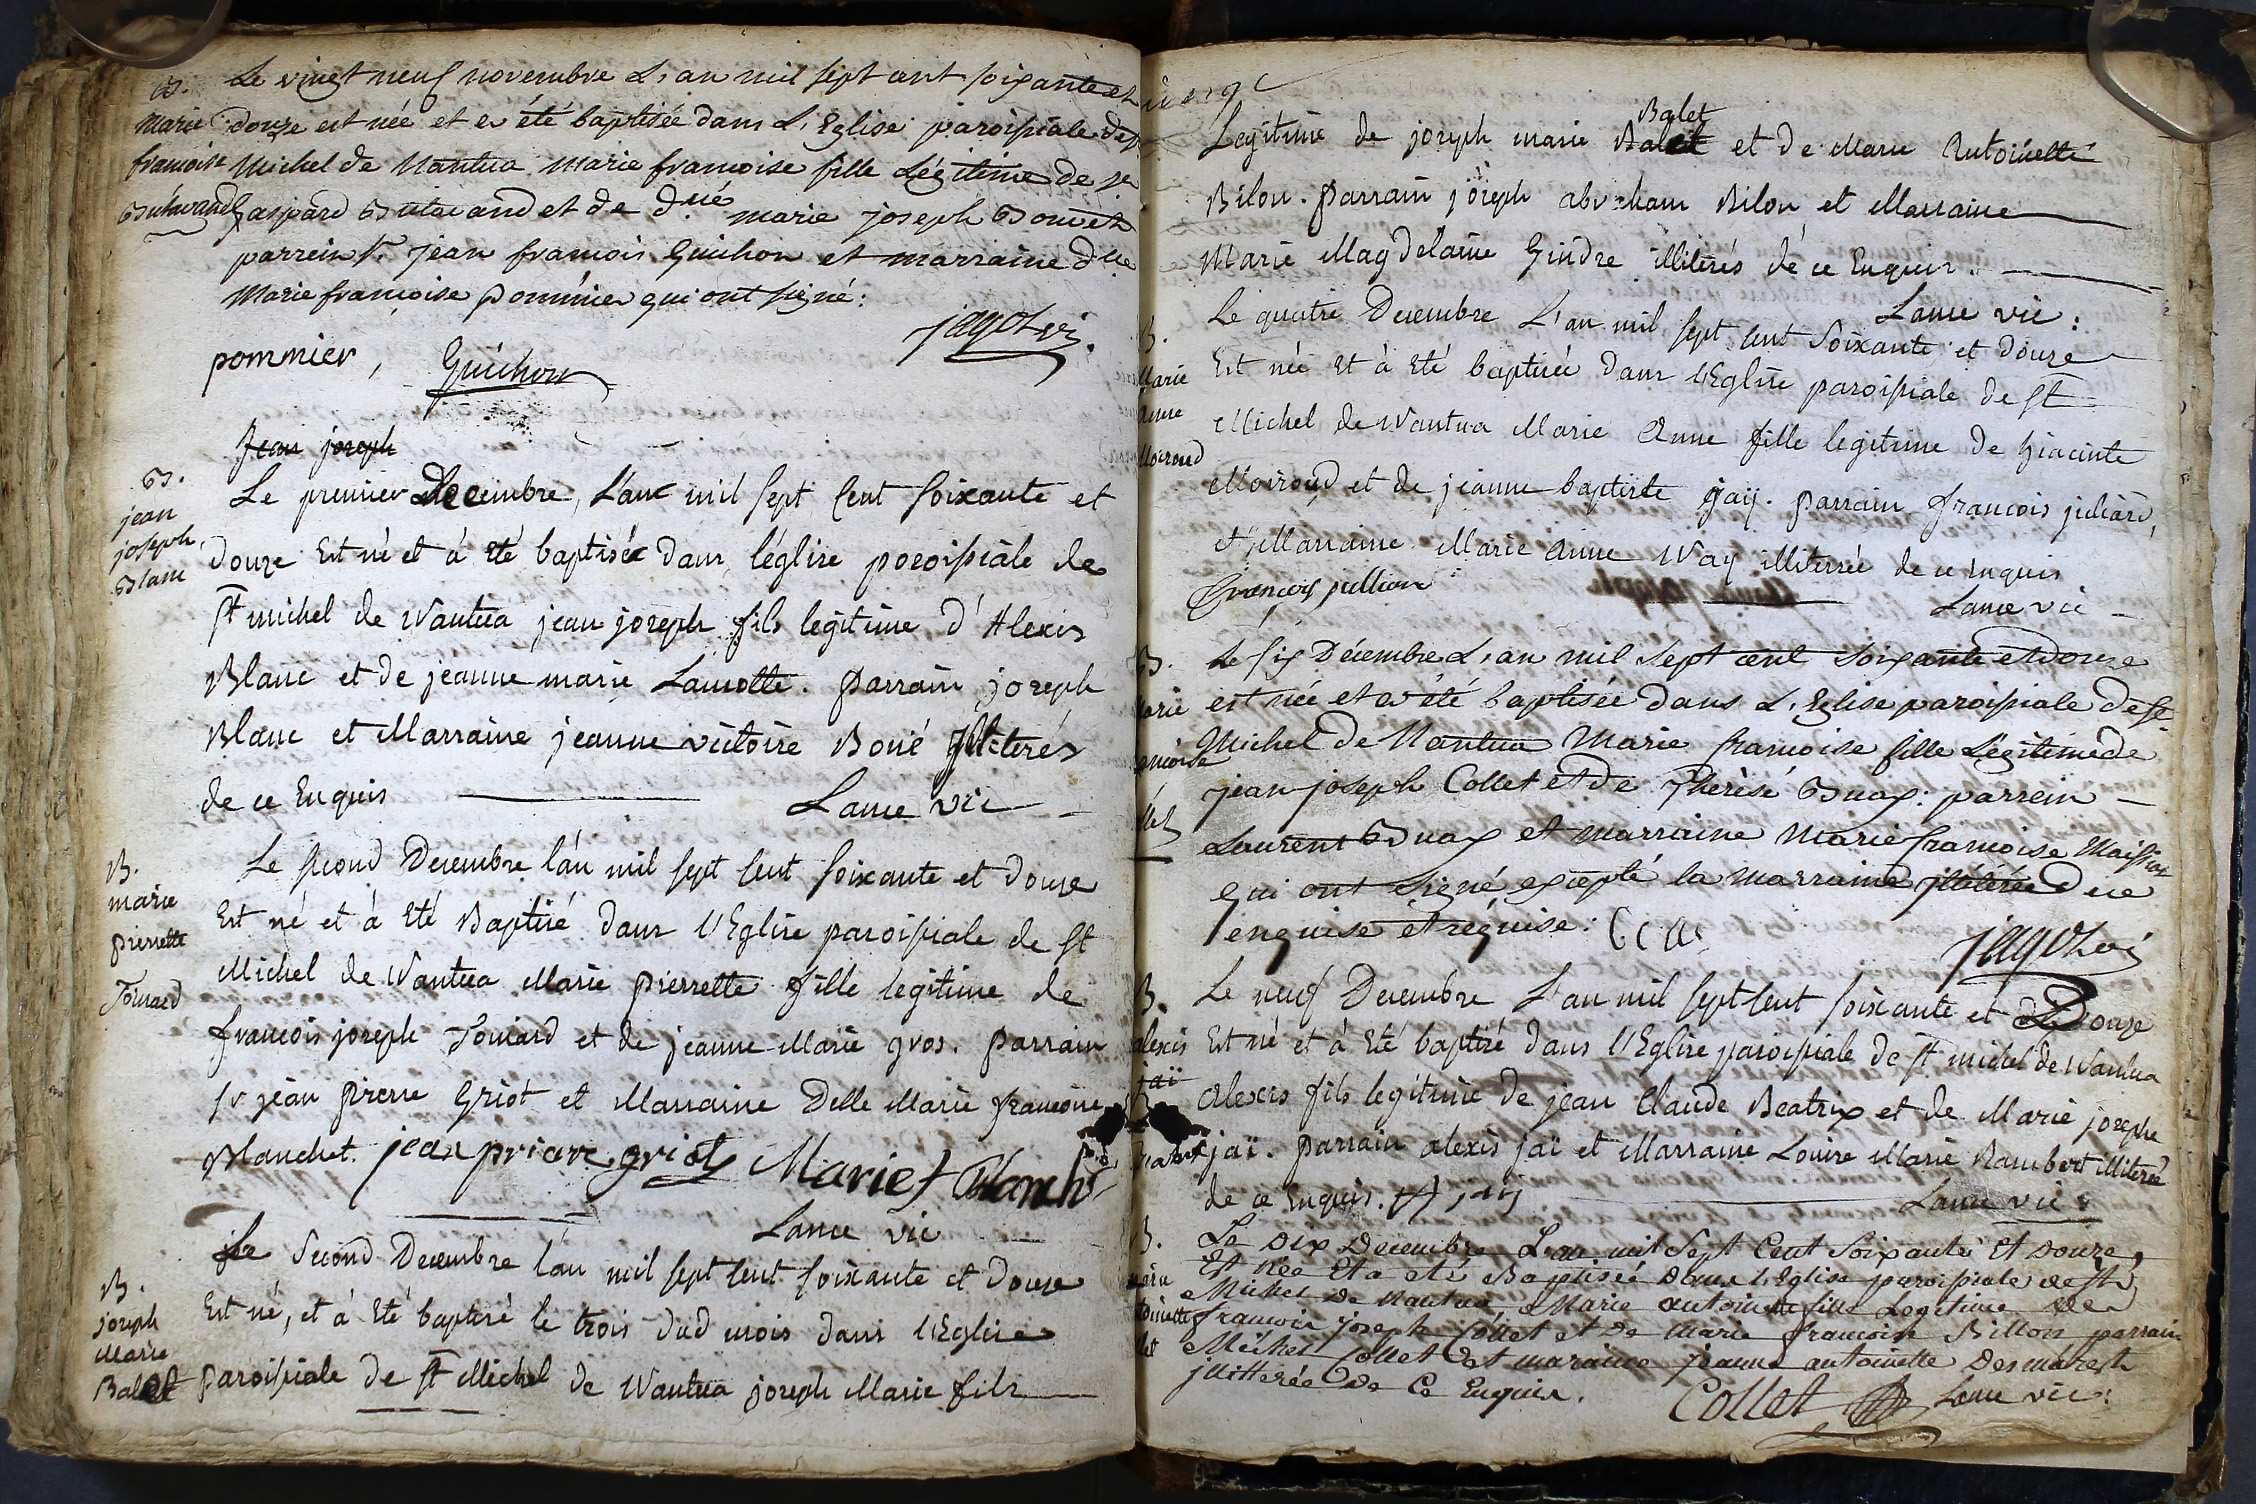 B. Le vingt neuf novembre L'an mil sept cent soixante et
Marie douze est née et a été baptisée dans L'Eglise paroissiale de st
francoise Michel de Nantua Marie francoise fille Légitime de sr
Butavand Gaspard Butavand et de dlle marie joseph Bouvet
parrein sr. jean francois Guichon et marraine dlle
Marie françoise pommier qui ont signé:
jagot vi.
pommier, Guichon
Jean joseph
B. Le premier Decembre, L'an mil sept cent soixante et
jean
joseph douze Est né et à Eté baptisé dans l'église paroissiale de
Blanc
st michel de Nantua jean joseph fils legitime d'Alexis
Blanc et de jeanne marie Lamotte. parrain joseph
Blanc et Marraine jeanne victoire Boné Illiterés
de ce Enquis Lance vic
B. Le second Decembre l'an mil sept cent soixante et douze
marie Est né et à Eté Baptisé dans l'Eglise paroissiale de st
pierrette Michel de Nantua Marie pierrette fille legitime de
Touiard
francois joseph Touiard et de jeanne Marie gros. parrain
sr jean pierre Griot et Marraine Delle Marie francoise
Blanchet. jean priare griot Marie f Blanch
Lance vic
Le Second Decembre l'an mil sept cent soixante et douze
B. Est né, et à Eté baptisé le trois dud mois dans l'Eglise
joseph
Marie
Balet paroissiale de st Michel de Nantua joseph Marie fils
Legitime de joseph marie Balet Balet et de Marie Antoinette
Bilon. parrain joseph abraham Bilon et Marraine
Marie Magdelaine Gindre illiterés de ce Enquis.
Lance vic:
B. Le quatre Decembre L'an mil sept cent Soixante et douze
Marie Est née Et à Eté baptisée dans l'Eglise paroissiale de st
Anne Michel de Nantua Marie Anne fille legitime de hiacinte
Moiroud Moiroud et de jeanne baptiste gaÿ. parrain francois juliard,
et Marraine Marie Anne illiterée de ce enquis
François jullian Lance vic
B. Le six Décembre L'an mil sept cent soixante et douze
Marie est née et a été baptisée dans L'Eglise paroissiale de st
ancoise Michel de Nantua Marie francoise fille Légitime de
llet jean joseph Collet et de Thérèse Buax: parrein
Laurent Buax et marraine Marie francoise Maissiat
qui ont signé excepté la marraine illitérée de ce
enquise et requise:
jagot vi
B. Le neuf Decembre L'an mil sept cent soixante et Douze
alexis Est né et à Eté baptisé dans l'Eglise paroissiale de st michel de Nantua
jaï Alexis fils legitime de jean Claude Beatrix et de Marie joseph
jaï. parrain alexis jaï et Marraine Louise Marie Rambert illiterée
de ce Enquis. Lance vic
B. Le Dix Decembre L'an mil Sept Cent Soixante Et douze,
Est née Et a eté Baptisée Dans l'Eglise paroissiale de st
Marie Michel De Nantua, Marie antoinette fille Legitime de
toinette francois joseph Collet et De Marie francoise Billon parrain
llet Michel Collet Et maraine jeanne antoinette Desmarest
jllitterée De Ce Enquis. Collet Lance vic: